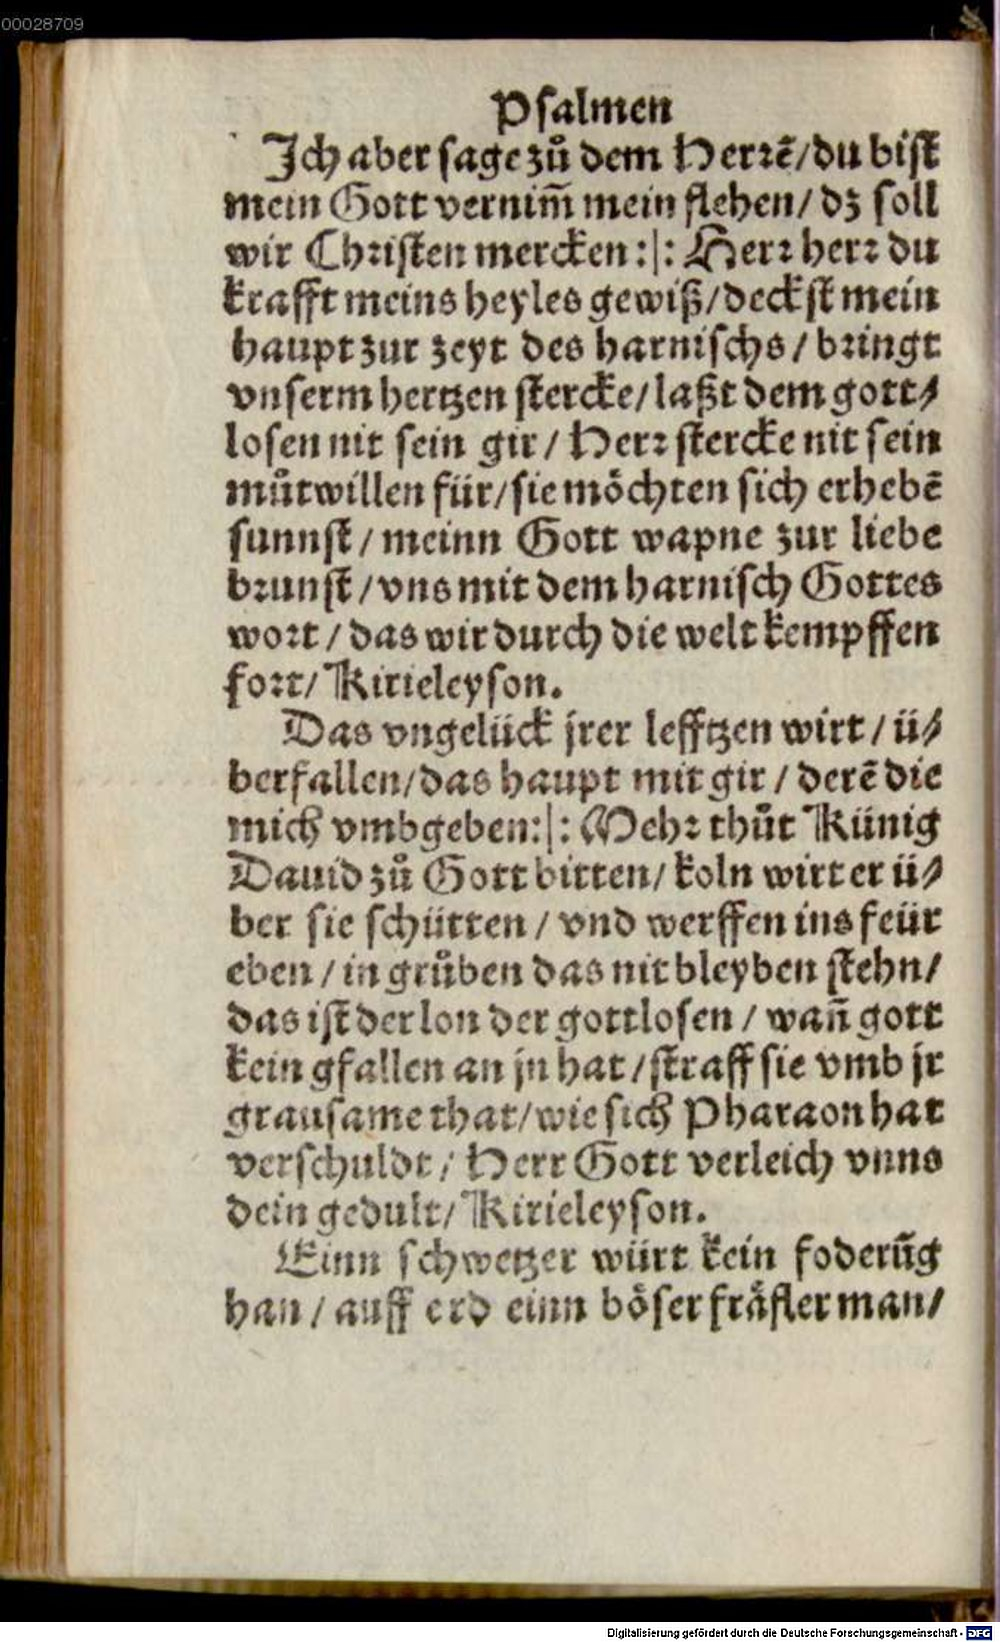 00028709
Psalmen
Ich aber sage zů dem Herrē/du bist
mein Gott vernim̄ mein flehen/ dz soll
wir Christen mercken:|: Herr herr du
krafft meins heyles gewiß/deckst mein
haupt zur zeyt des harnischs/bringt
vnserm hertzen stercke/laßt dem gott⸗
losen nit sein gir/ Herr stercke nit sein
můtwillen für/sie möchten sich erhebē
sunnst/meinn Gott wapne zur liebe
brunst/vns mit dem harnisch Gottes
wort/das wir durch die welt kempffen
fort/ Kirieleyson.
Das vngelück jrer lefftzen wirt/ü⸗
berfallen/das haupt mit gir/derē die
mich vmbgeben:|: Mehr thůt Künig
Dauid zů Gott bitten/koln wirt er ü⸗
ber sie schütten/vnd werffen ins feür
eben/in grůben das nit bleyben stehn/
das ist der lon der gottlosen/wan̄ gott
kein gfallen an jn hat/straff sie vmb jr
grausame that/wie sich Pharaon hat
verschuldt/Herr Gott verleich vnns
dein gedult/ Kirieleyson.
Einn schwetzer würt kein foderūg
han/auff erd einn böser fräfler man/
Digitalisierung gefördert durch die Deutsche Forschungsgemeinschaft - DFG